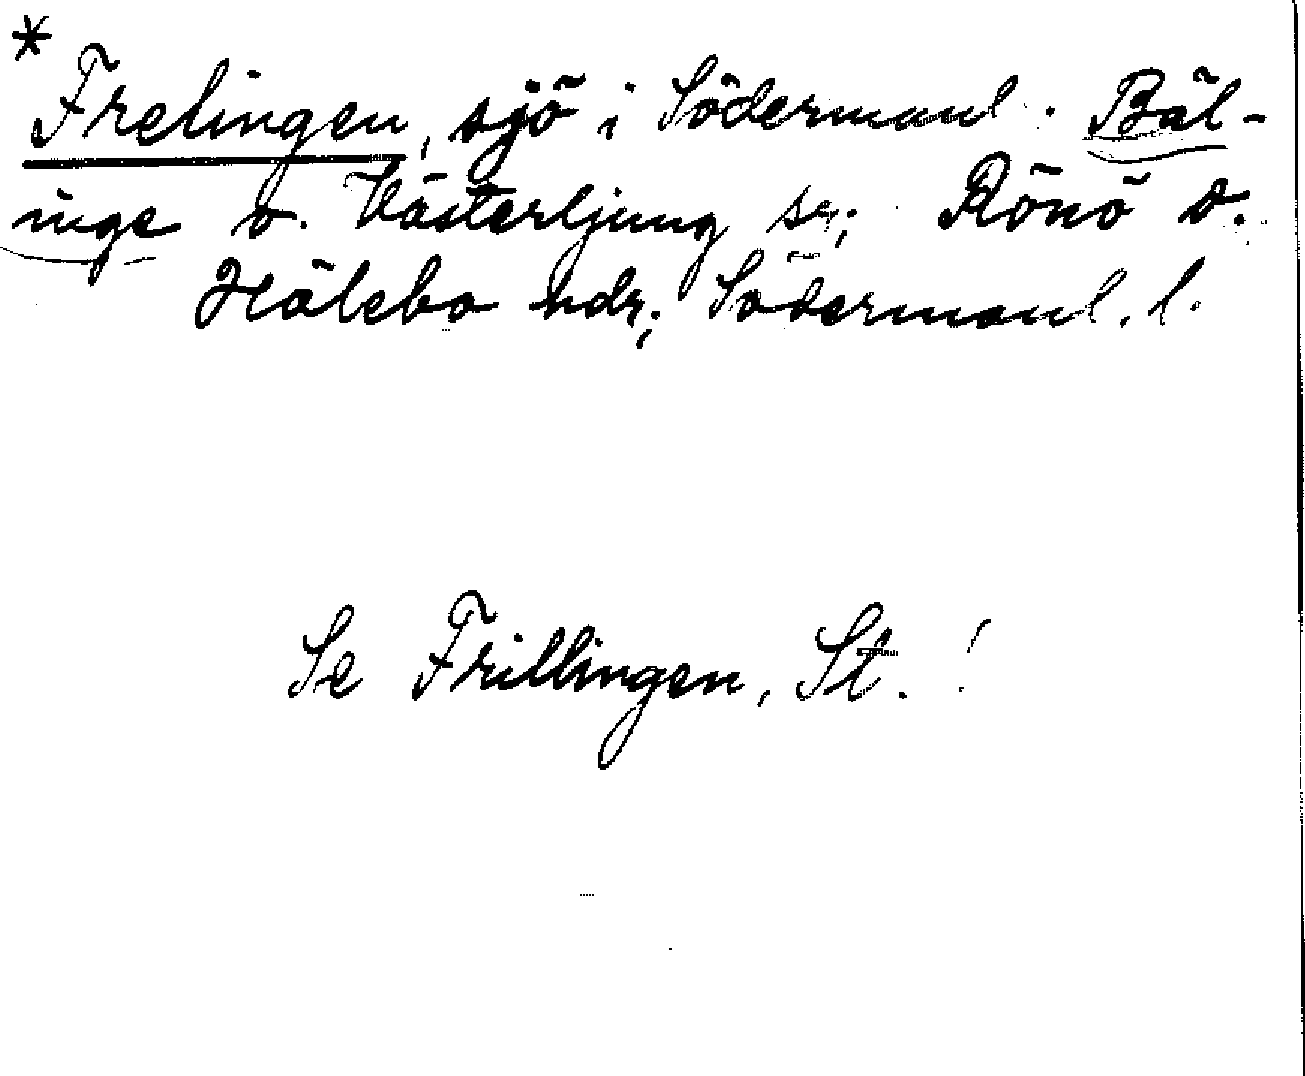 *
Frelingen, sjö i Södermanl. Bäl-
inge o. Västerljung sr; Rönö o.
Hölebo hdr; Södermanl. l.
Se Frillingen, St. !